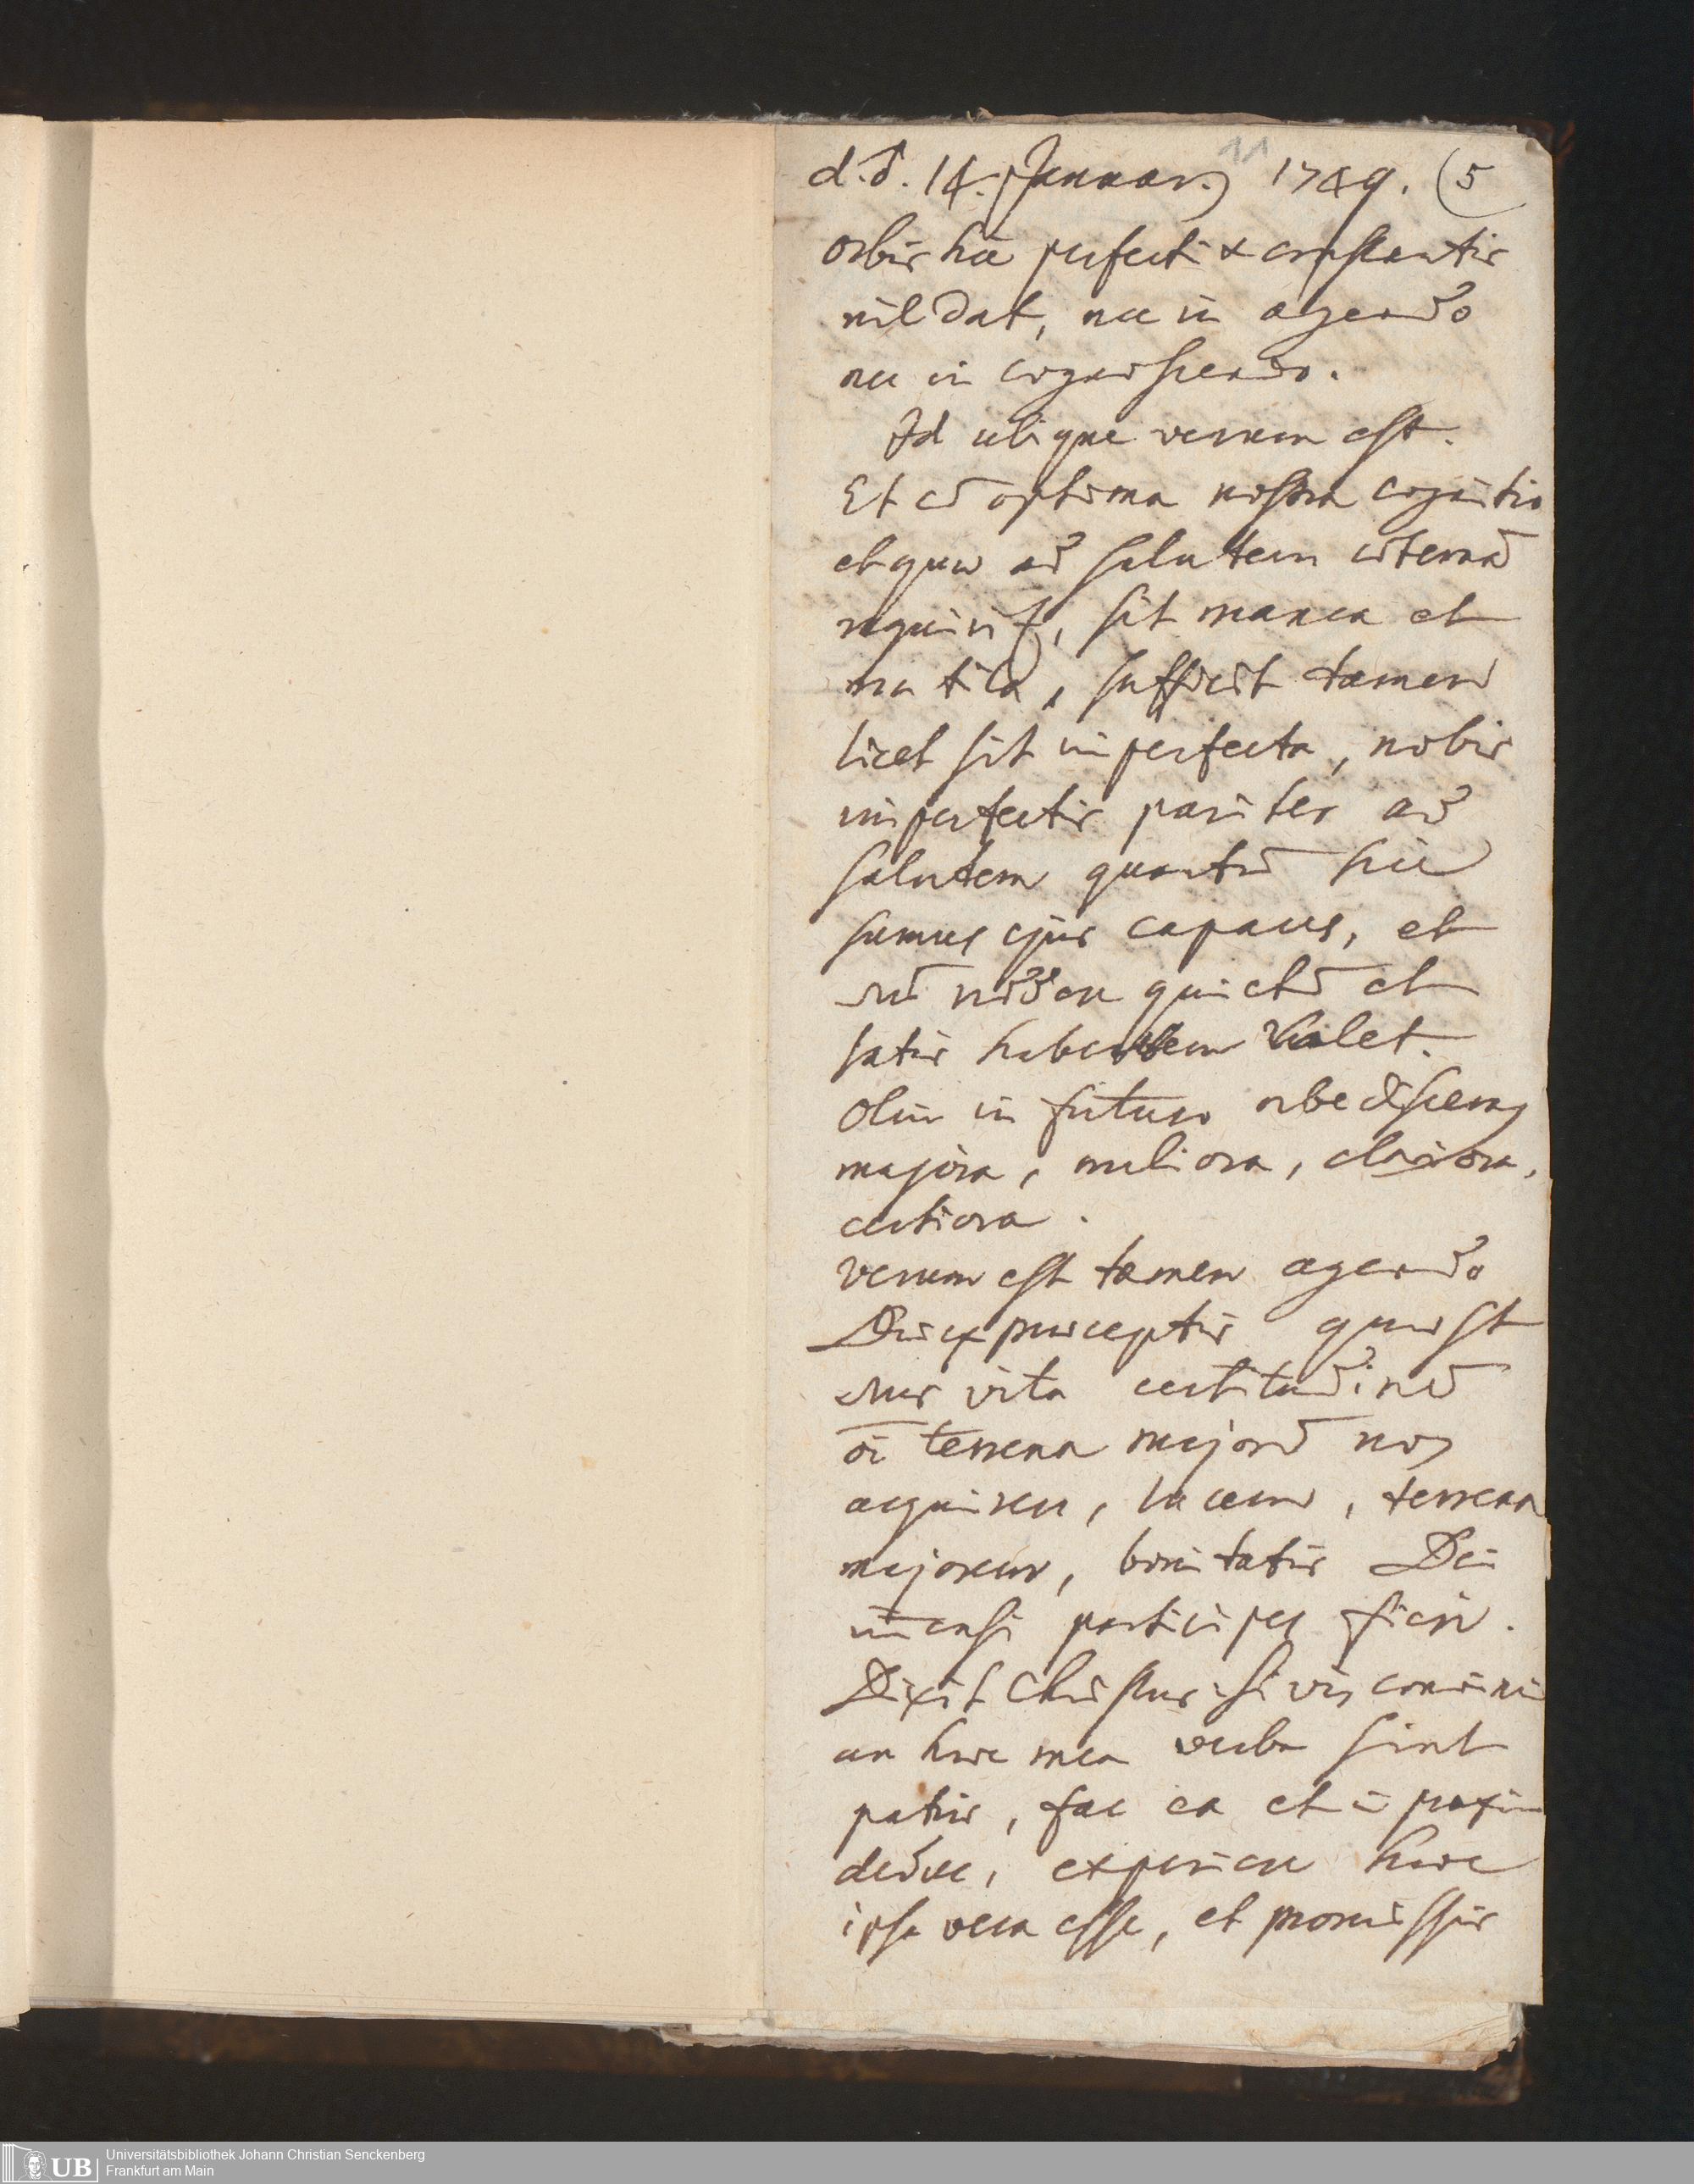 11
d. ♂. 14. Januar. 1749. (5
orbis hic perfecti & constantis
nil dat, nec in agendo
nec in cognoscendo.
Id ubique verum est.
Et cū optima nostra cognitio
et quae ad salutem aeternā
requirit, sit manca et
mutila, sufficit tamen
licet sit imperfecta, nobis
imperfectis pariter ad
salutem quantū hic
sumus ejus capaces, et
reddere quietū et
satis habentem valet.
Olim in futuro orbe discemus
majora, meliora, clariora,
certiora.
Verum est tamen agendo
Dei ex praeceptis quaest
vita certitudinē
oī terrena majorē nos
acquirere, lucem, terrena
majorem, bonitatis Dei
im̄ensi participes fieri.
Dixit Christus: si vis convinci
an haec mea verba sint
patris, fac ea et ī praxin
deduc, experiere haec
ipsa vera esse, et promissis
UB
Universitätsbibliothek Johann Christian Senckenberg
Frankfurt am Main